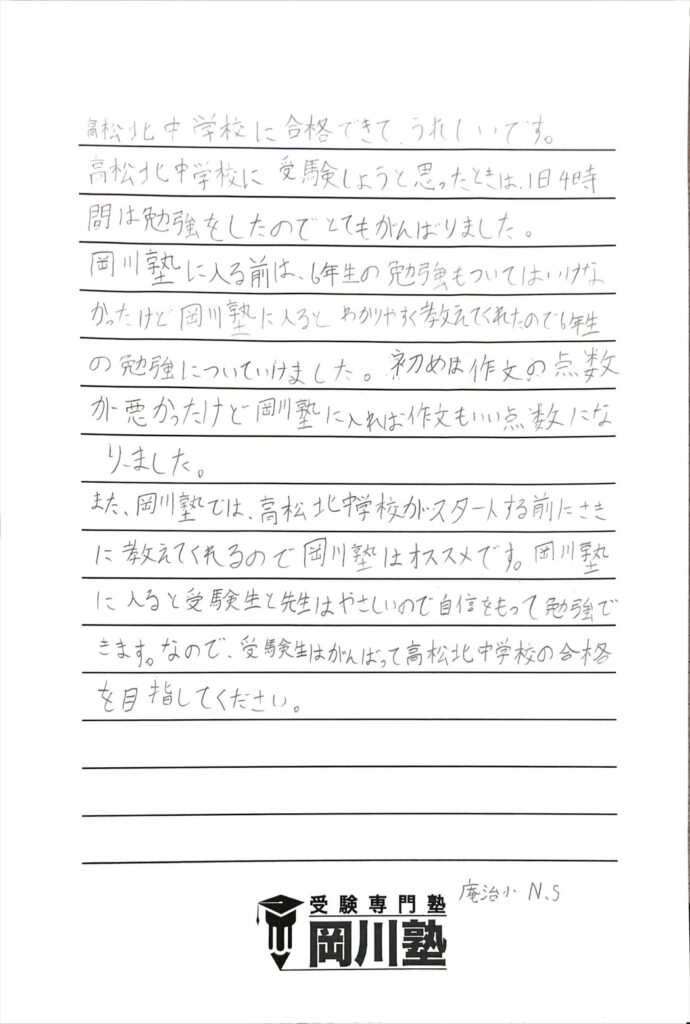 高松北中学校に合格できて、うれしいです。
高松北中学校に受験しようと思ったときは、1日4時
間は勉強をしたのでとてもがんばりました。
岡川塾に入る前は、6年生の勉強もついてはいけな
かったけど岡川塾に入るとわかりやすく教えてくれたので6年生
の勉強についていけました。初めは作文の点数
が悪かったけど岡川塾に入れば作文もいい点数にな
りました。
また、岡川塾では、高松北中学校がスタートする前にさき
に教えてくれるので岡川塾はオススメです。岡川塾
に入ると受験生と先生はやさしいので自信をもって勉強で
きます。なので、受験生はがんばって高松北中学校の合格
を目指してください。
庵治小 N.S
受験専門塾
岡川塾